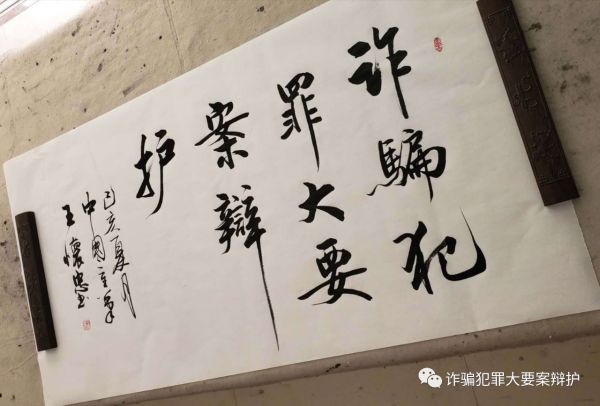 诈骗犯
罪大要
案辩
护
己亥夏月
中國
王懷忠书
诈骗犯罪大要案辩护